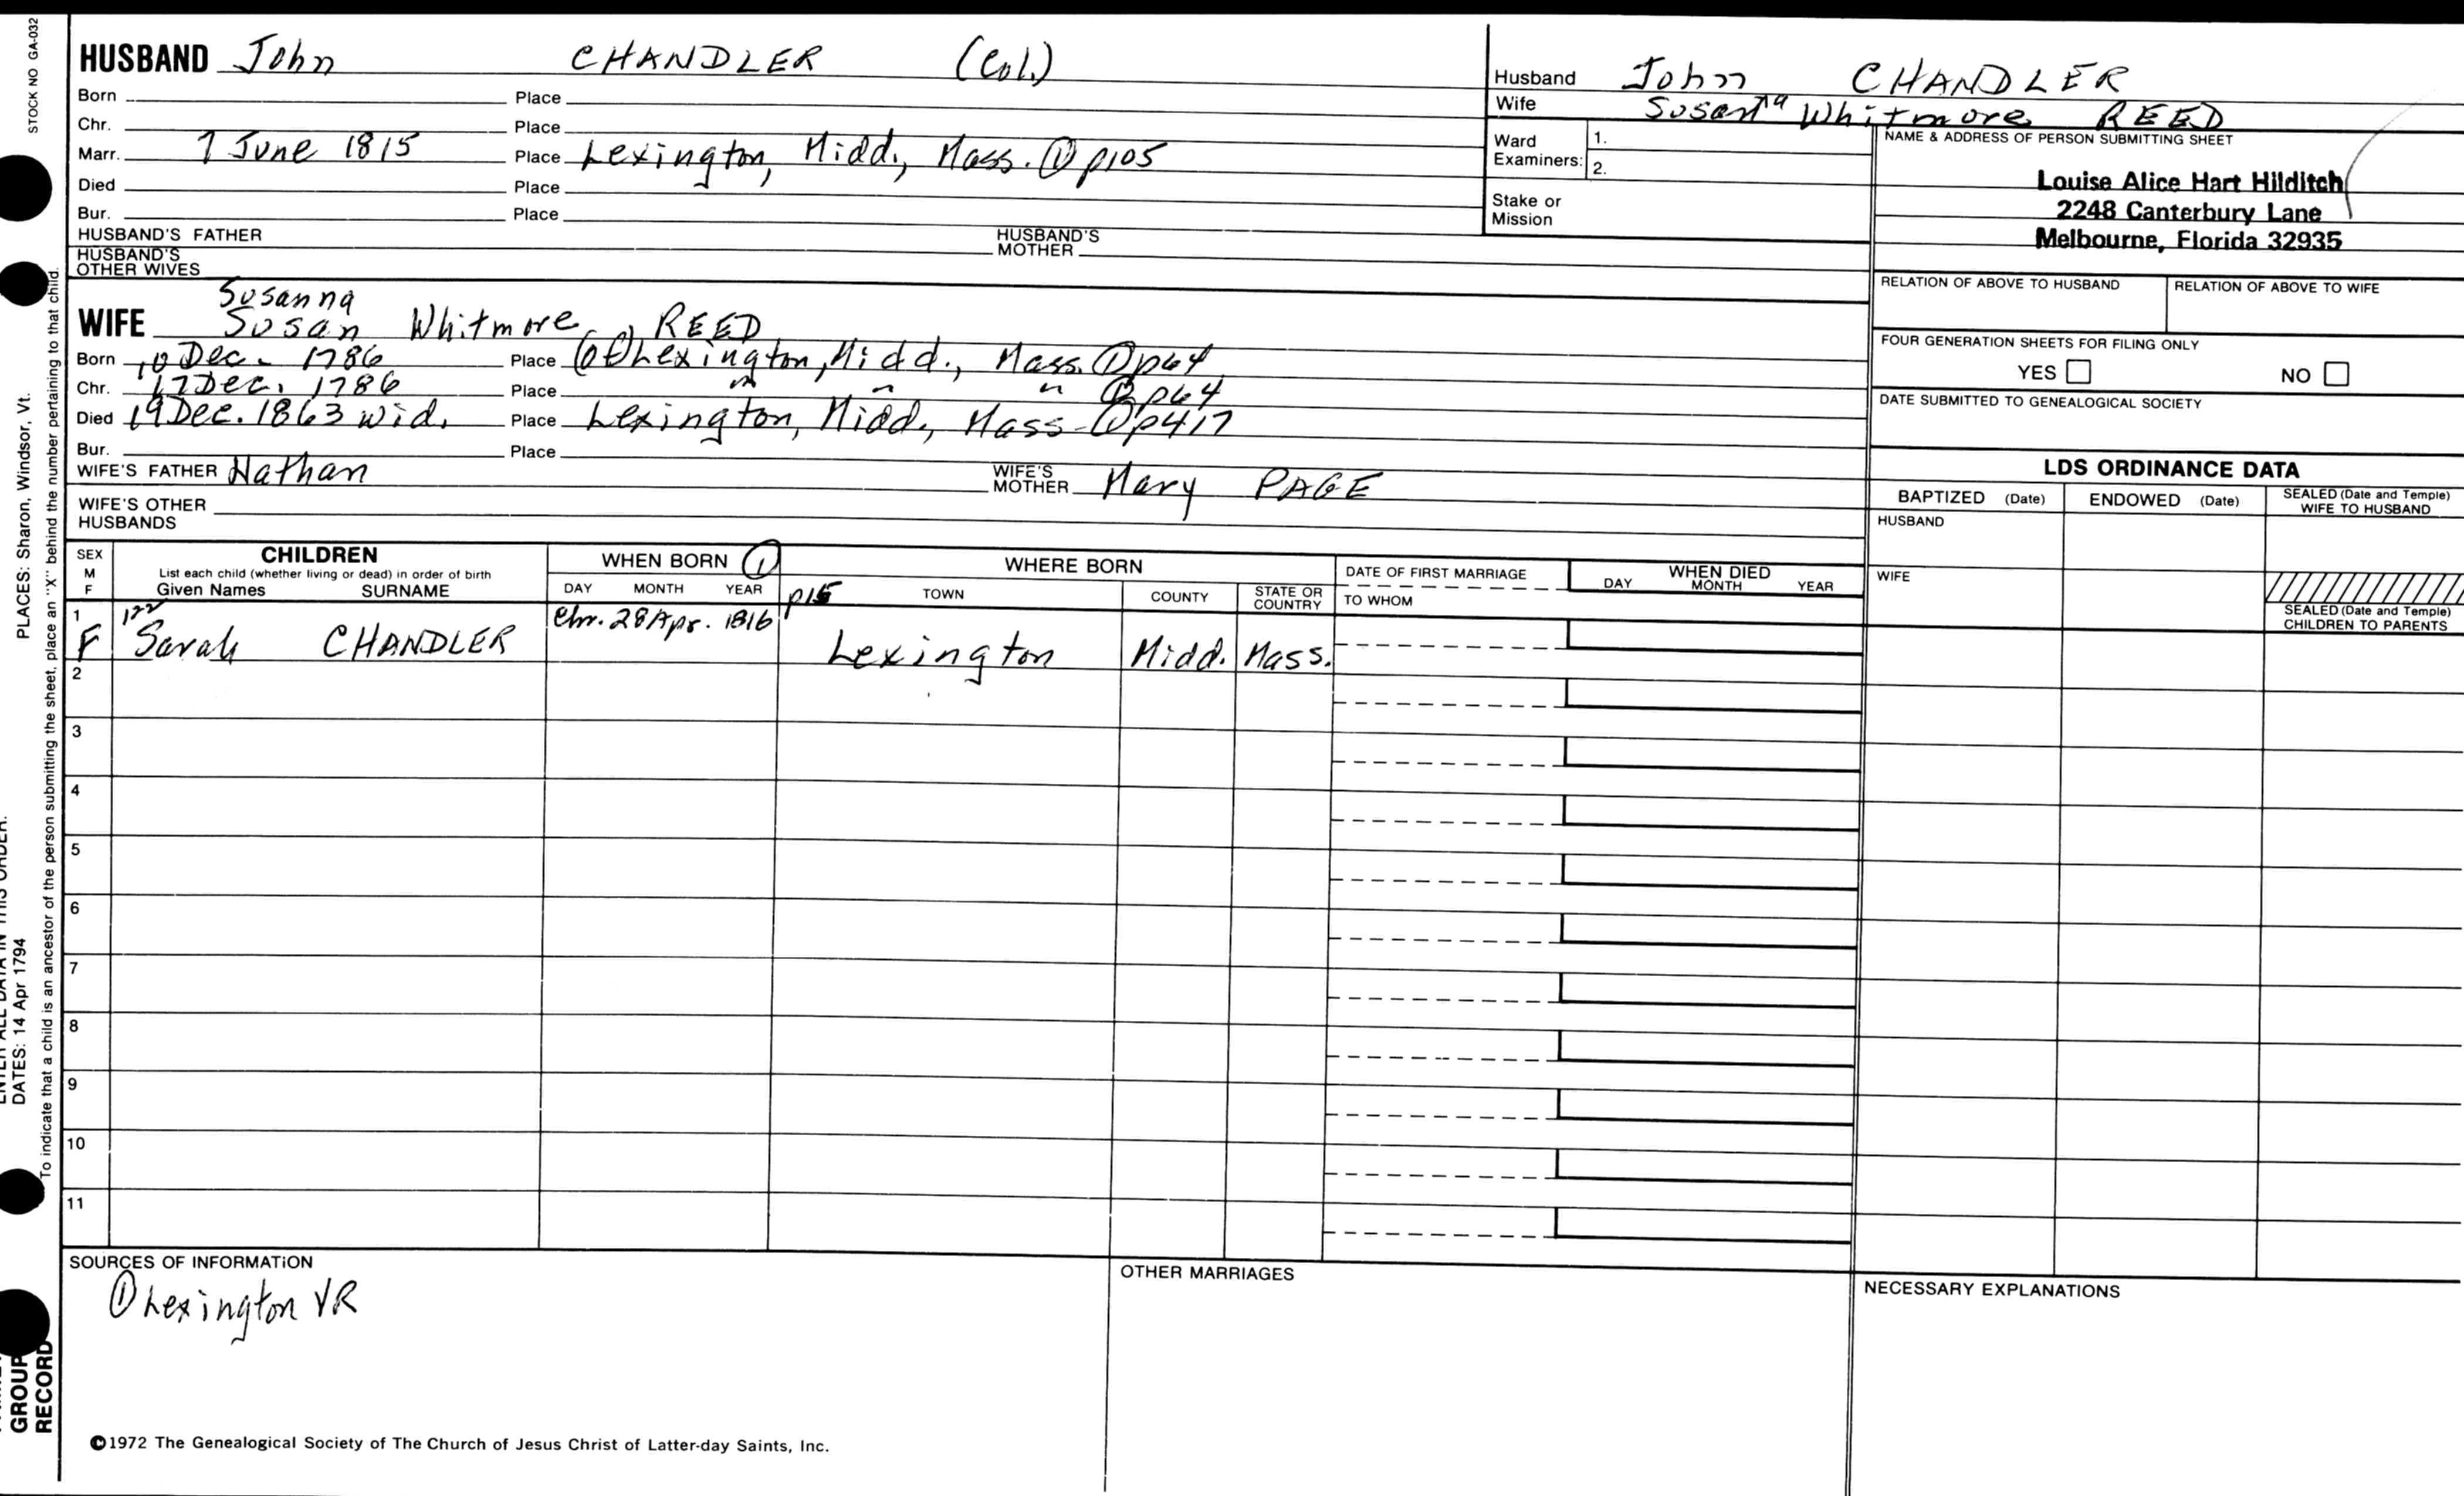 STOCK NO GA-032
HUSBAND John CHANDLER (Col.)
Born Place
Chr. Place
Marr. 7 June 1815 Place Lexington, Midd., Mass. ① p105
Died Place
Bur. Place
HUSBAND'S FATHER HUSBAND'S MOTHER
HUSBAND'S OTHER WIVES
Susanna
WIFE Susan Whitmore REED
Born 10 Dec. 1786 Place Lexington, Midd., Mass. ① p64
Chr. 17 Dec. 1786 Place " " " ① p64
Died 19 Dec. 1863 wid. Place Lexington, Midd., Mass. ① p417
Bur. Place
WIFE'S FATHER Nathan WIFE'S MOTHER Mary PAGE
WIFE'S OTHER HUSBANDS
Husband John CHANDLER
Wife Susanna Whitmore REED
Ward Examiners: 1.
2.
Stake or Mission
NAME & ADDRESS OF PERSON SUBMITTING SHEET
Louise Alice Hart Hilditch
2248 Canterbury Lane
Melbourne, Florida 32935
RELATION OF ABOVE TO HUSBAND RELATION OF ABOVE TO WIFE
FOUR GENERATION SHEETS FOR FILING ONLY
YES NO
DATE SUBMITTED TO GENEALOGICAL SOCIETY
LDS ORDINANCE DATA
BAPTIZED (Date) ENDOWED (Date) SEALED (Date and Temple) WIFE TO HUSBAND
HUSBAND
WIFE
SEALED (Date and Temple) CHILDREN TO PARENTS
SEX M F
CHILDREN
List each child (whether living or dead) in order of birth
Given Names SURNAME
WHEN BORN ①
DAY MONTH YEAR
p15
WHERE BORN
TOWN COUNTY STATE OR COUNTRY
DATE OF FIRST MARRIAGE
TO WHOM
WHEN DIED
DAY MONTH YEAR
1 F Sarah CHANDLER Chr. 28 Apr. 1816 Lexington Midd. Mass.
2
3
4
5
6
7
8
9
10
11
SOURCES OF INFORMATION
① Lexington VR
OTHER MARRIAGES
NECESSARY EXPLANATIONS
©1972 The Genealogical Society of The Church of Jesus Christ of Latter-day Saints, Inc.
PLACES: Sharon, Windsor, Vt.
DATES: 14 Apr 1794
To indicate that a child is an ancestor of the person submitting the sheet, place an "X" behind the number pertaining to that child.
GROUP
RECORD